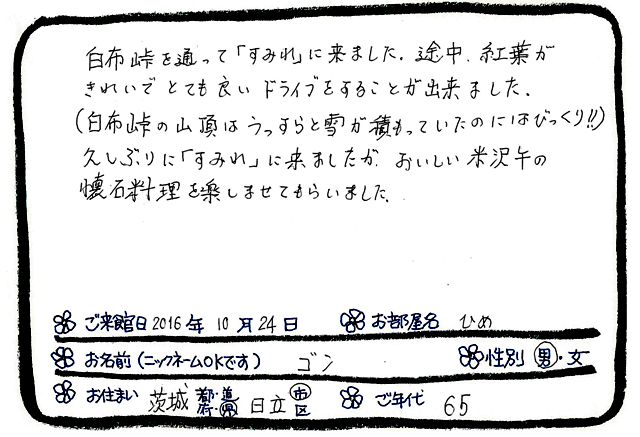 白布峠を通って「すみれ」に来ました。途中、紅葉が
きれいでとても良いドライブをすることが出来ました。
(白布峠の山頂はうっすらと雪が積もっていたのにはびっくり!!)
久しぶりに「すみれ」に来ましたが おいしい米沢牛の
懐石料理を楽しませてもらいました。
ご来館日 2016年 10月24日 お部屋名 ひめ
お名前(ニックネームOKです) ゴン 性別 男・女
お住まい 茨城 都・道・府・県 日立 市区 ご年代 65